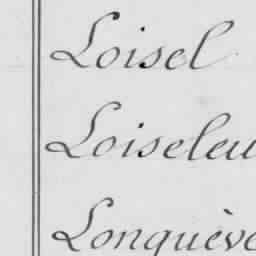 Loisel
Loiseleu
Longuève